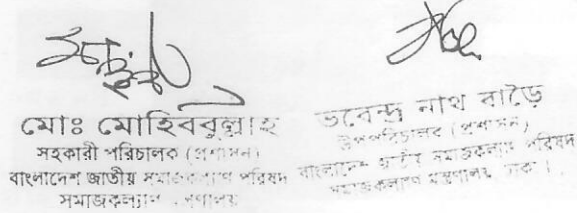 মোঃ মোহিববুল্লাহ
সহকারী পরিচালক (প্রশাসন)
বাংলাদেশ জাতীয় সমাজকল্যাণ পরিষদ
সমাজকল্যাণ মন্ত্রণালয়
ভবেন্দ্র নাথ বাড়ৈ
উপপরিচালক (প্রশাসন)
বাংলাদেশ জাতীয় সমাজকল্যাণ পরিষদ
সমাজকল্যাণ মন্ত্রণালয়, ঢাকা।